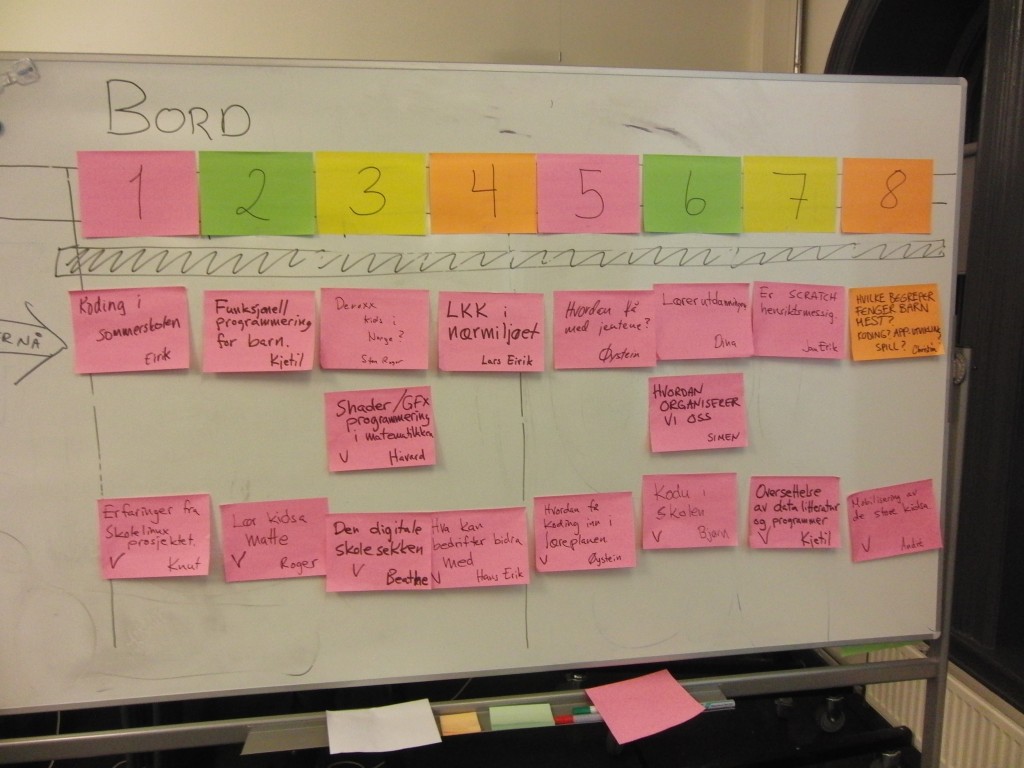 BORD
1
2
3
4
5
6
7
8
ER NÅ
Koding i
Sommerskolen
Eirik
Funksjonell
programmering
for barn.
Kjetil
kids i
Norge?
LKK i
nærmiljøet
Lars Eirik
Hvordan få
med jentene?
Øystein
Lærerutdanningen
Dina
Er SCRATCH
henriktsmessig.
Jan Erik
HVILKE BEGREPER
FENGER BARN
MEST?
KODING? APP.UTVIKLING?
SPILL?
Christin
Shader/GFX
programmering
i matematikken
V Håvard
HVORDAN
ORGANISERER
VI OSS
SIMEN
Erfaringer fra
Skolelinux
prosjektet.
V Knut
Lær kidsa
matte
V Roger
Den digitale
skolesekken
V Beathe
Hva kan
bedrifter bidra
med
V Hans Erik
Hvordan få
koding inn i
læreplanen
V Øystein
Kodu i
skolen
V Bjørn
Oversettelse
av data litteratur
og programmer
V Kjetil
Mobilisering av
de store kidsa
V André